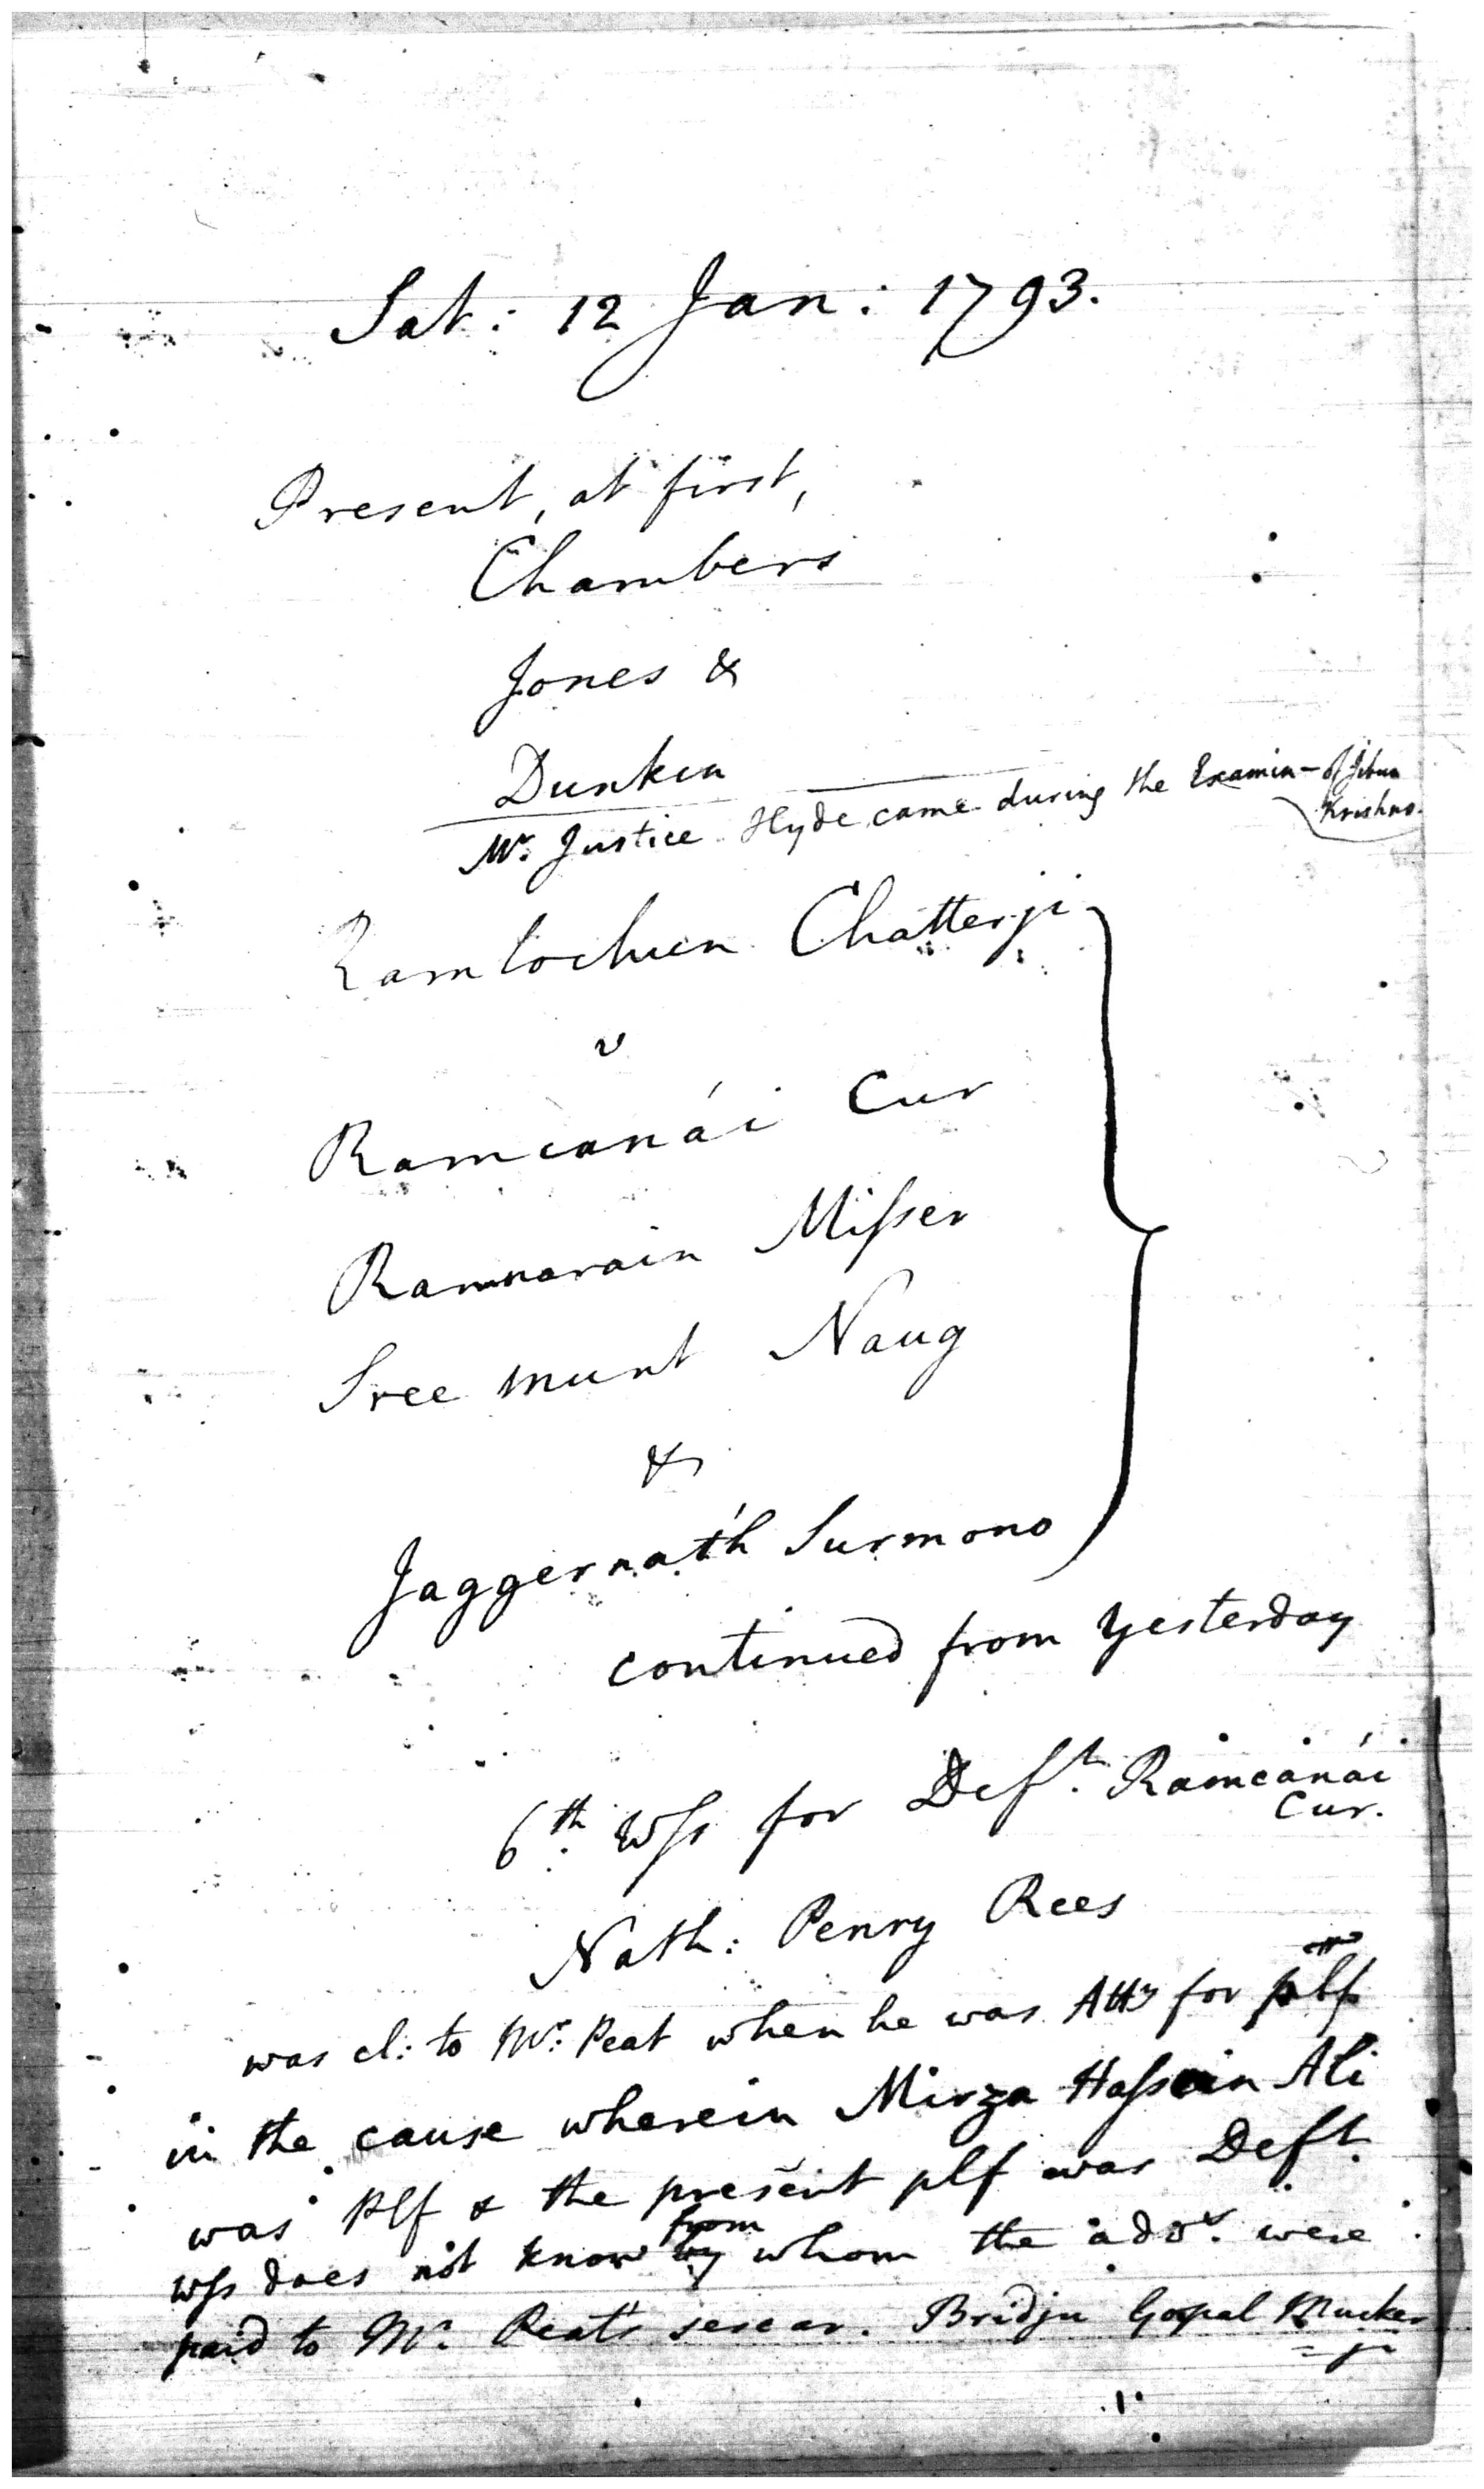 Sat: 12 Jan: 1793.
Present, at first,
Chambers
Jones &
Dunkin
Mr. Justice Hyde came during the Examin- of Jibun
Krishno.
Ramlochun Chatterji
v
Ramcanái Cur
Ramnarain Misser
Sree munt Naug
&
Jaggernáth Surmono
continued from yesterday
6th. Wss for Deft. Ramcanái
Cur.
Nath: Penry Rees
was cl: to Mr. Peat when he was Atty for plf
in the cause wherein Mirza Hassein Ali
was Plf & the present plf was Deft.
from
Wss does not know by whom the adv. were
paid to Mr. Peat's sercar. Bridju Gopal Mucker
=ji